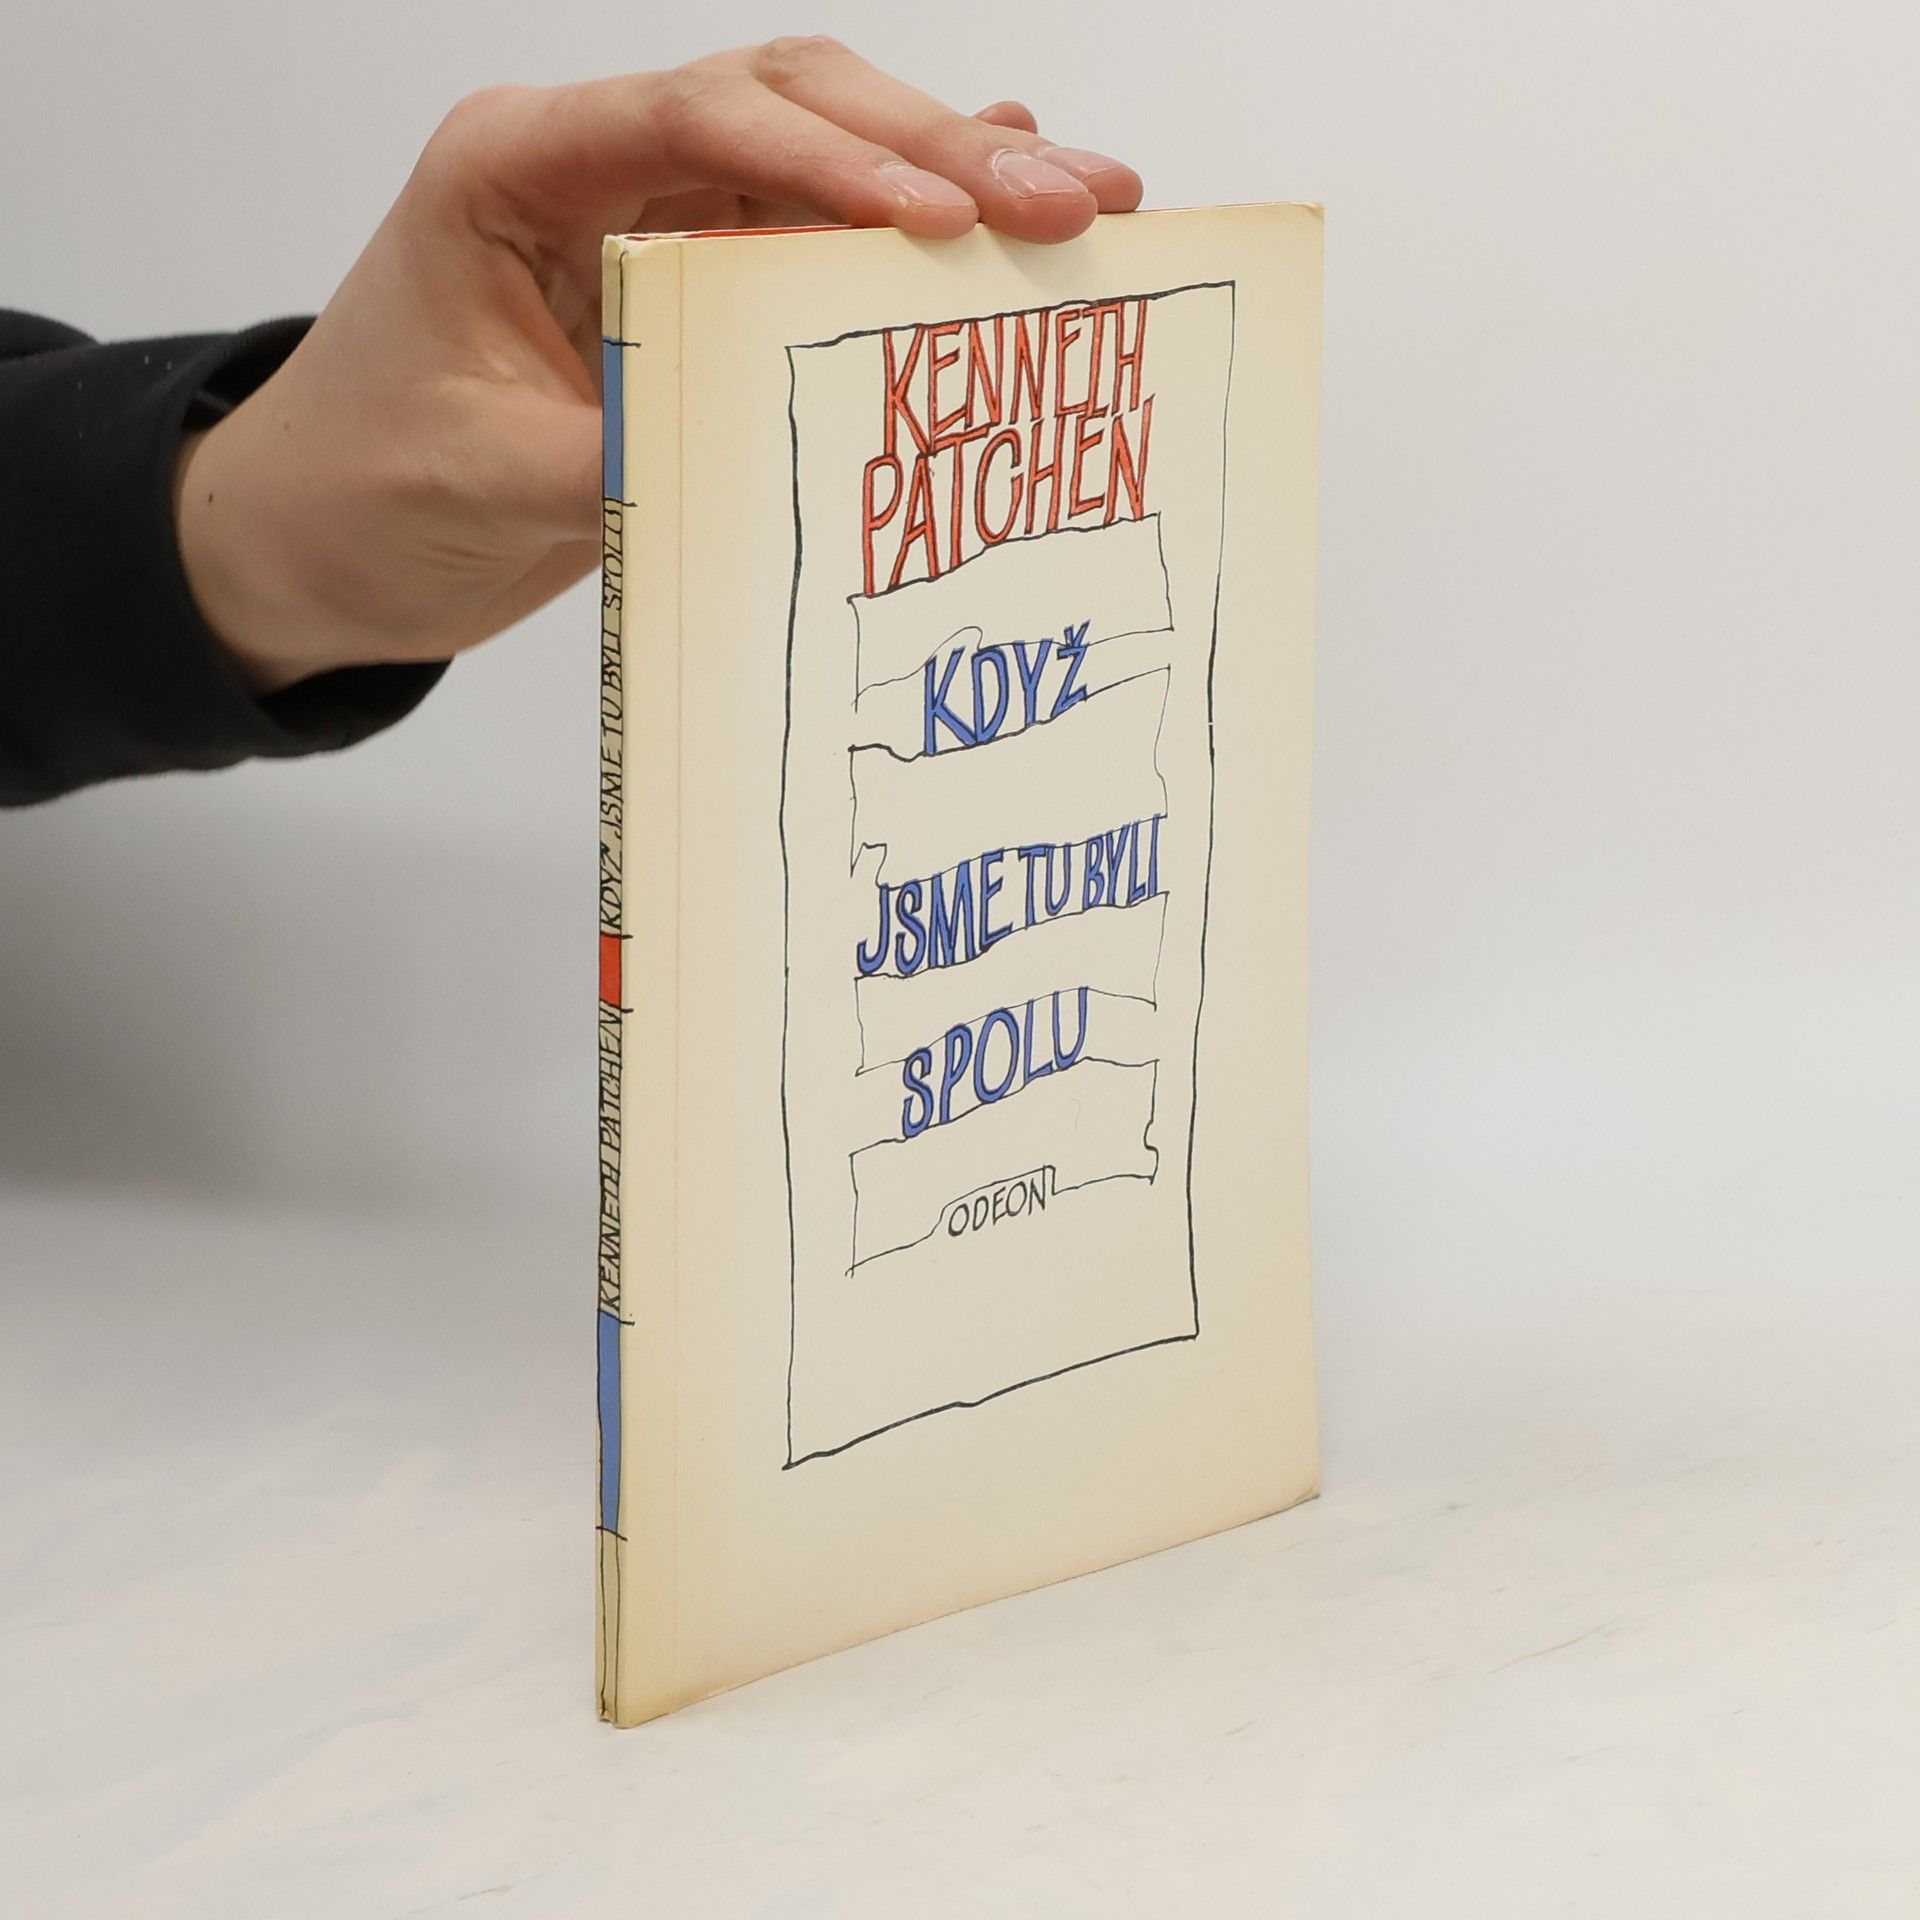 KENNETH
PATCHEN
KDYŽ
JSME TU BYLI
SPOLU
ODEON
KENNETH PATCHEN KDYŽ JSME TU BYLI SPOLU